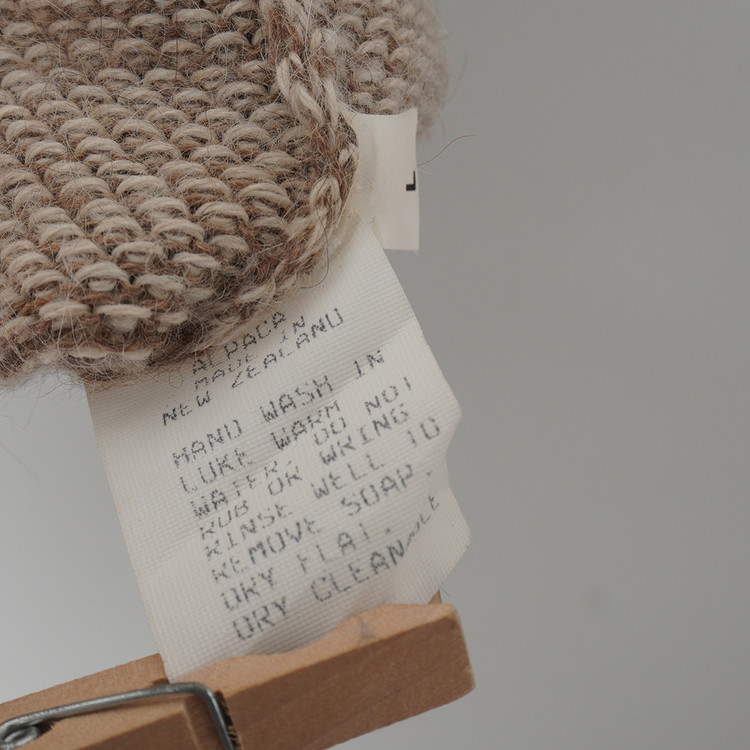 L
ALPACA
MADE IN
NEW ZEALAND
HAND WASH IN
LUKE WARM
WATER. DO NOT
RUB OR WRING
RINSE WELL TO
REMOVE SOAP.
DRY FLAT.
DRY CLEANABLE